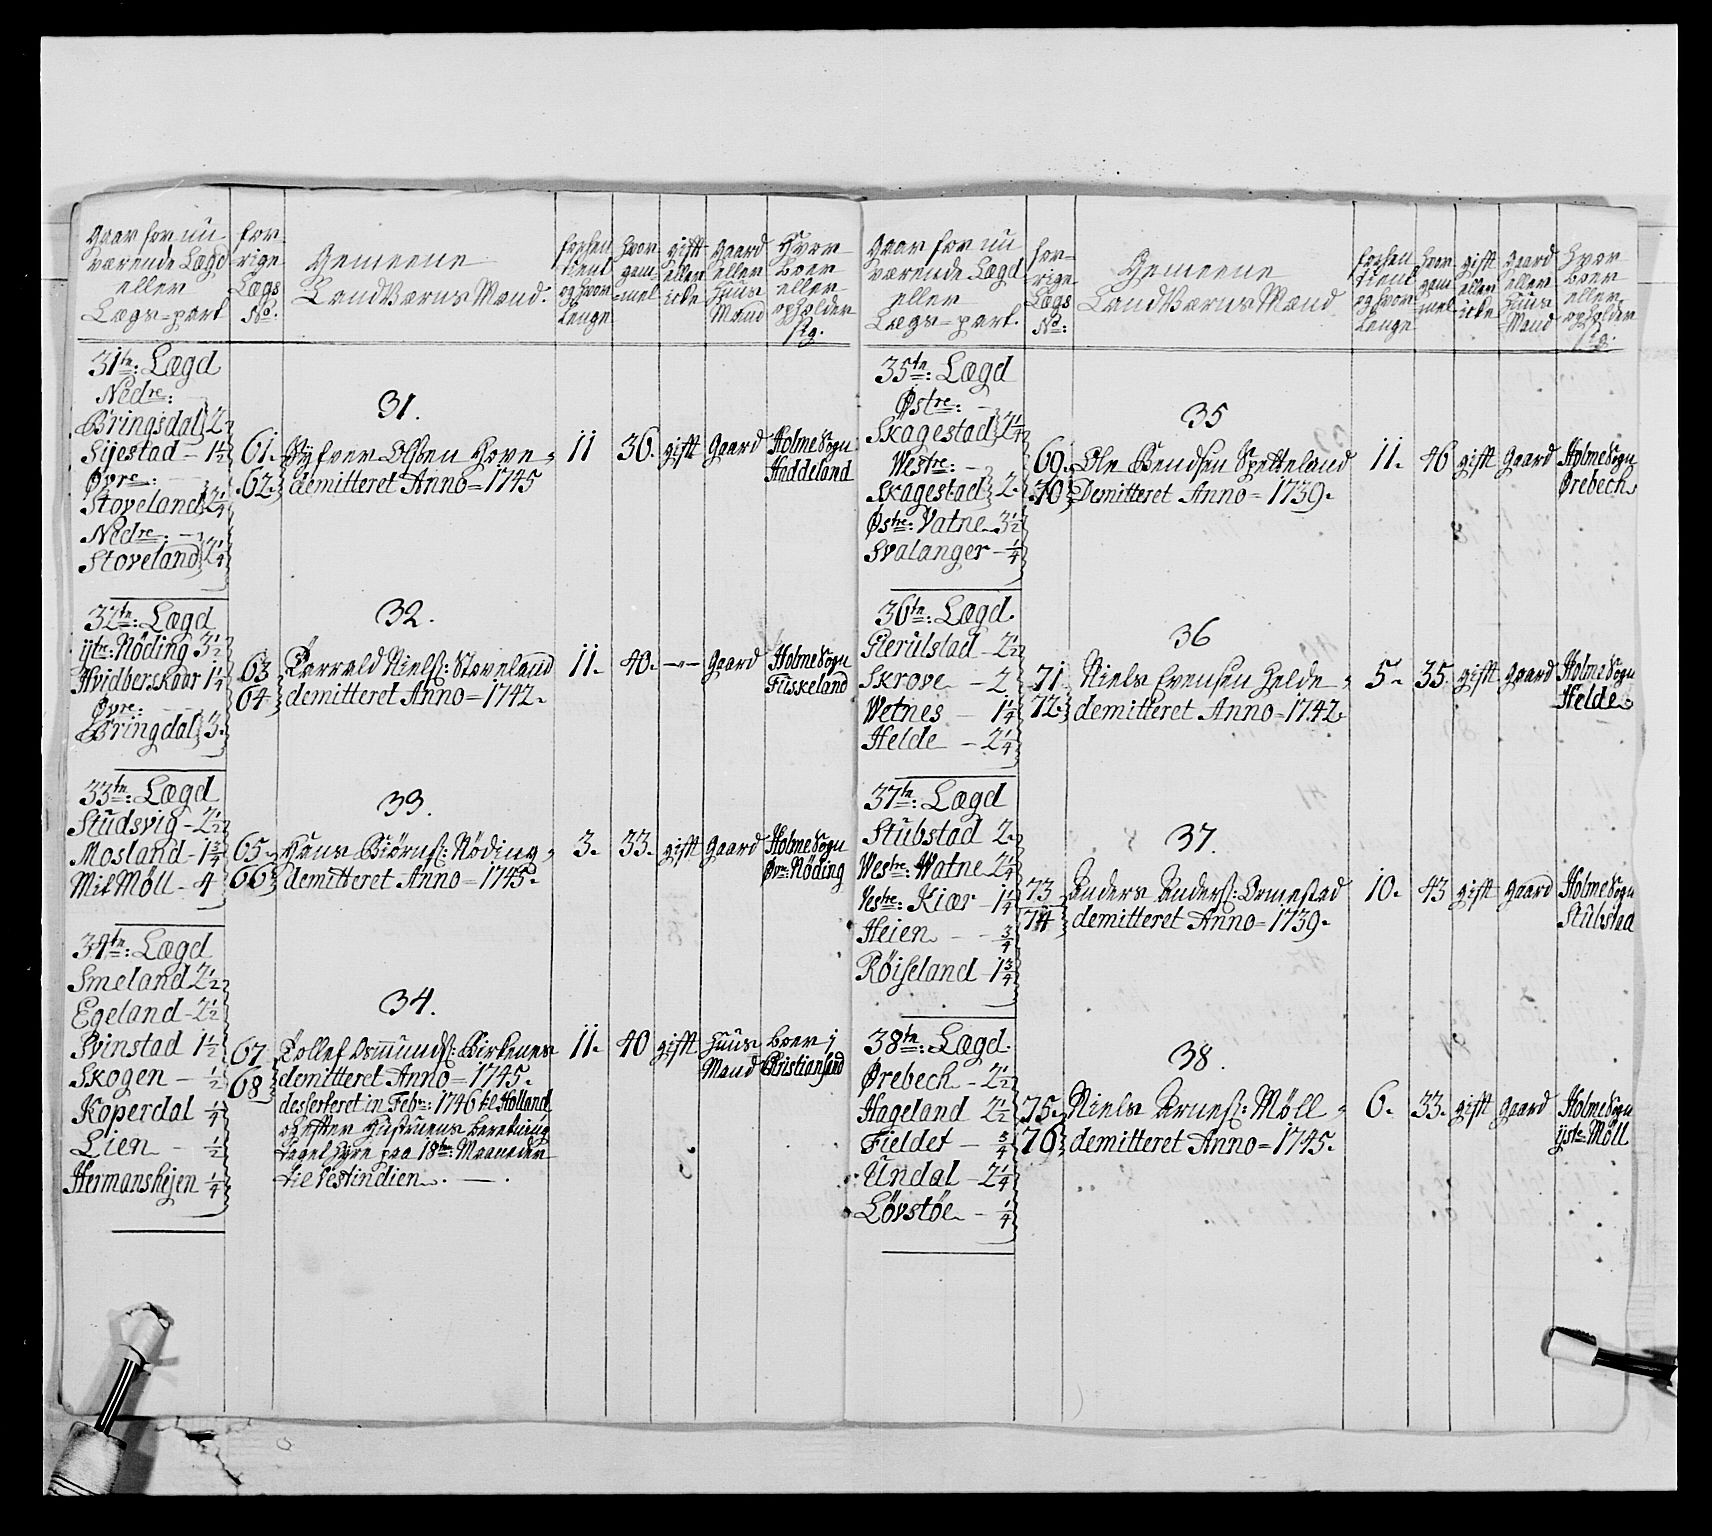 Gaar for nu
værende Lægd
eller
Lægs=part
for-
rige
Lægs
No.
Gemeene
LandværnsMænd.
forhen
tient
og hvor
Lenge
hvor
gam-
mel
gift
eller
icke
Gaard
eller
Huus
Mand
Hvor
boer
eller
opholder
sig.
31te: Lægd
Nedre: -
Bringsdal 2
Sijestad - 1 1/2
Øvre: -
Stoveland 2 1/4
Nedre: -
Stoveland 2 1/4
31.
61.
62.
Øyfver Olsen Hove
demitteret Anno=1745
11 36. gift Gaard
Holme Sogn
Haddeland
32te: Lægd
ijtre: Nöding 3 1/2
Hvidberskaar 1 1/4
Øvre: -
Bringdal 3.
32.
63
64
Torvald Niels: Stoveland
demitteret Anno=1742.
11. 40. -"- Gaard
Holme Sogn
Fuskeland
33te: Lægd
Studsvig - 2 1/2
Mosland - 1 3/4
Mit Möll - 4
33.
65.
66
Hans Biörns: Nöding
demitteret Anno=1745.
3. 33. gift Gaard
Holme Sogn
Øvre Nöding
34te: Lægd
Smeland 2 1/2
Egeland - 2 1/2
Svinstad 1 1/2
Skogen - 1/2
Koperdal 1/4
Lien - 1/2
Hermanshejen 1/4
34.
67
68
Tollef Osmunds: Birkenes
demitteret Anno=1745.
desserteret in Febr: 1746 til Holland
og efter Hustruens beretning
taget Hyre paa 18te: Maaneder
til Vestindien. -
11. 40 gift
Huus
Mand
boer i
Christiansand
Gaar for nu
værende Lægd
eller
Lægs=part.
for-
rige
Lægs
No:
Gemeene
LandværnsMænd
forhen
tient
og hvor
Lenge
hvor
gam
mel
gift
eller
icke
Gaard
eller
Huus
Mand
Hvor
boer
eller
opholder
sig.
35te: Lægd
Østre: -
Skagestad 2 1/4
Westre: -
Skagestad 2.
Østre: Vatne 3 1/2
Svalanger - 1/4
35
69.
70
Ole Bendsen Spetteland
Demitteret Anno=1739.
11. 46 gift Gaard
Holme Sogn
Ørebech
36te: Lægd.
Gierulstad - 2 1/2
Skrove - 2
Vetnes - 1 1/4
Helde - 2 1/4
36
71
72.
Niels Evensen Helde
demitteret Anno=1742.
5. 35. gift Gaard
Holme Sogn
Helde
37te: Lægd
Stubstad 2.
Westre: Watne 2 1/4
Vestre: Kiær - 1 1/4
Heien - - 3/4
Røiseland - 1 3/4
37.
73
74
Anders Anders: Ormestad
demitteret Anno=1739.
10. 43 gift Gaard
Holme Sogn
Stubstad
38te: Lægd.
Ørebech - 2 1/2
Hageland 2 1/2
Fieldet - 3/4
Undal - 2 1/4
Lövstöe - 1/4
38.
75.
76
Niels Arnes: Möll
demitteret Anno=1745.
6. 33. gift Gaard
Holme Sogn
ijstre Möll